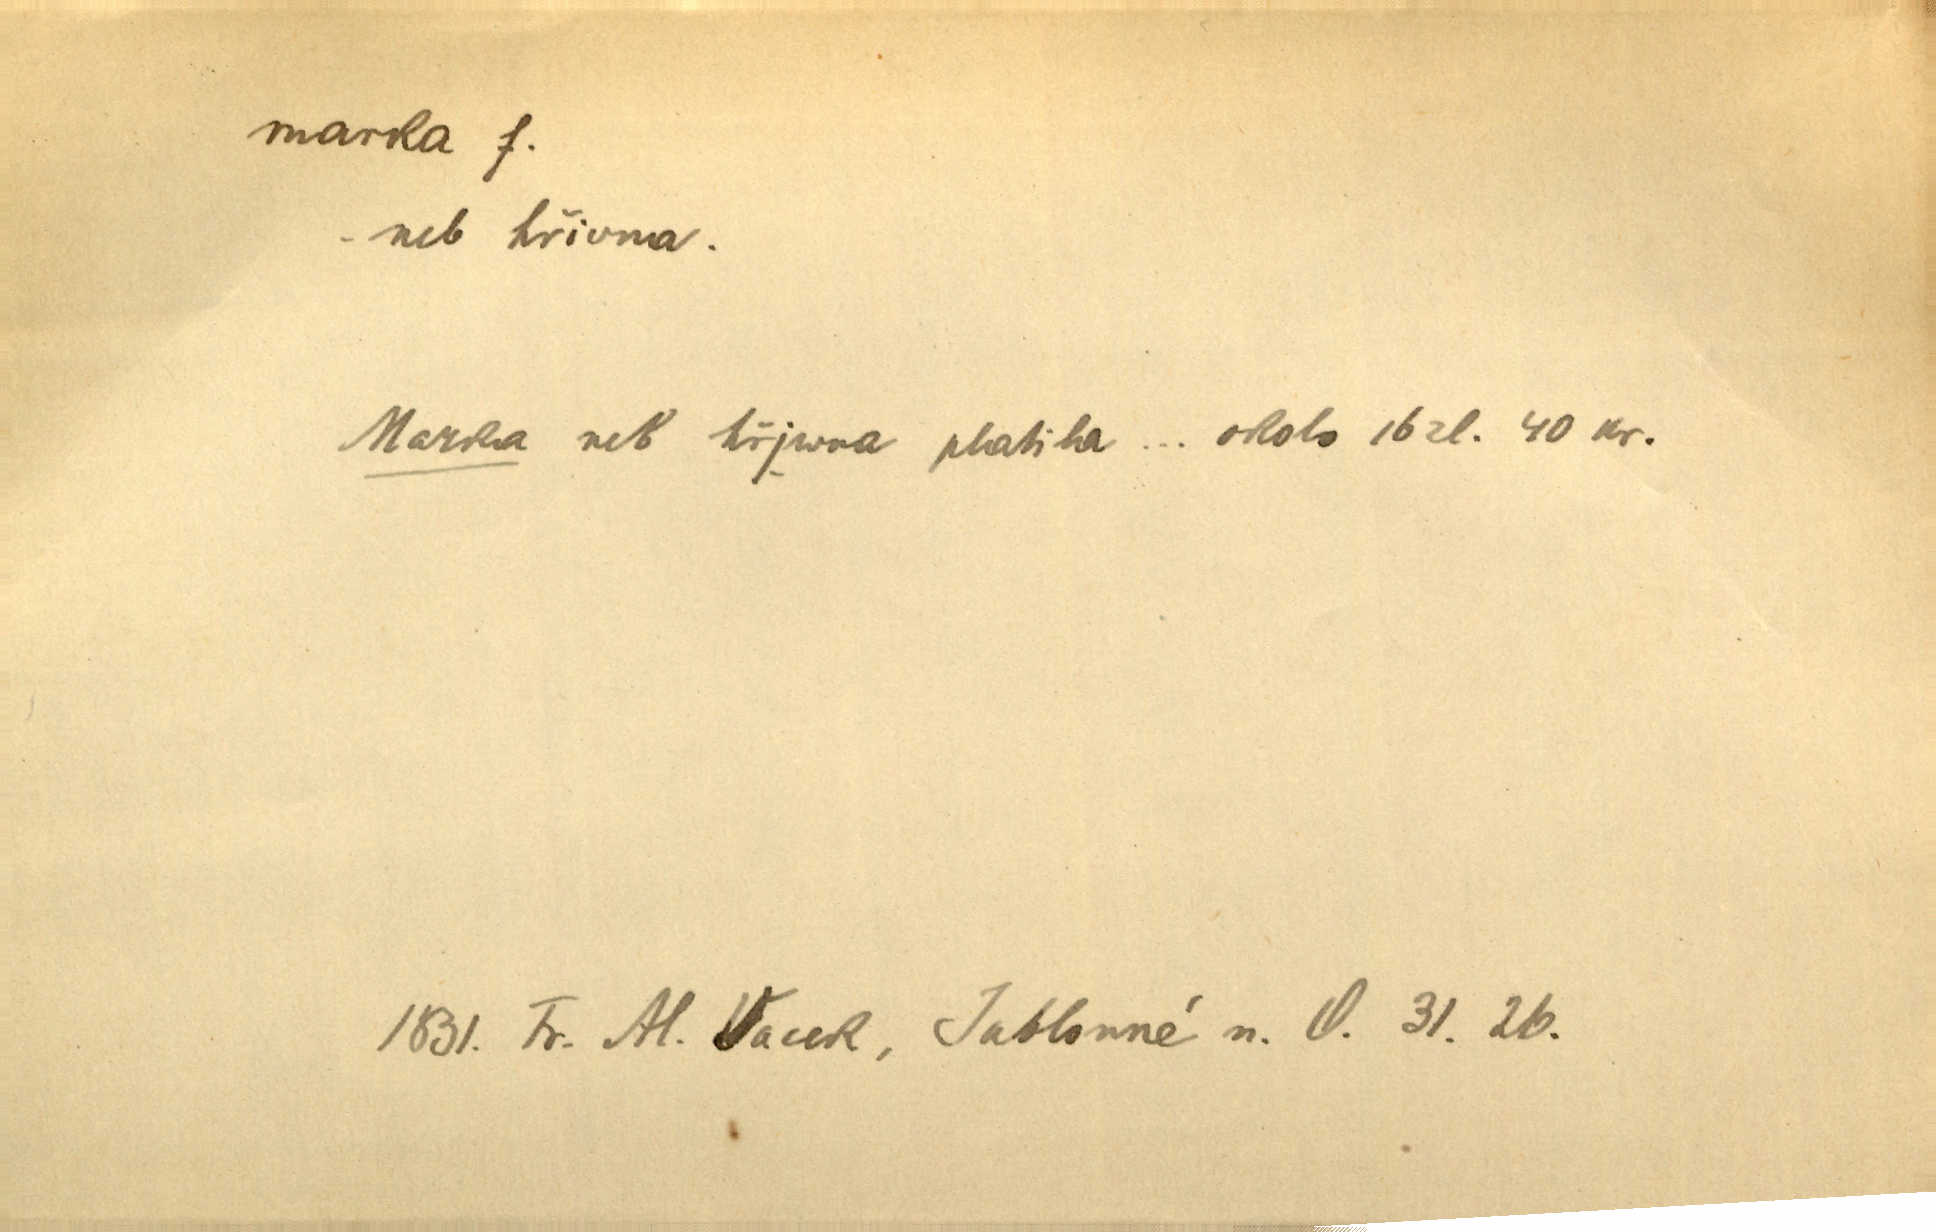 marka f.
- neb hřivna.
Marka neb hřjwna platila ... okolo 16 zl. 40 kr.
1831. Fr. Al. Vacek, Jablonné n. O. 31. 26.